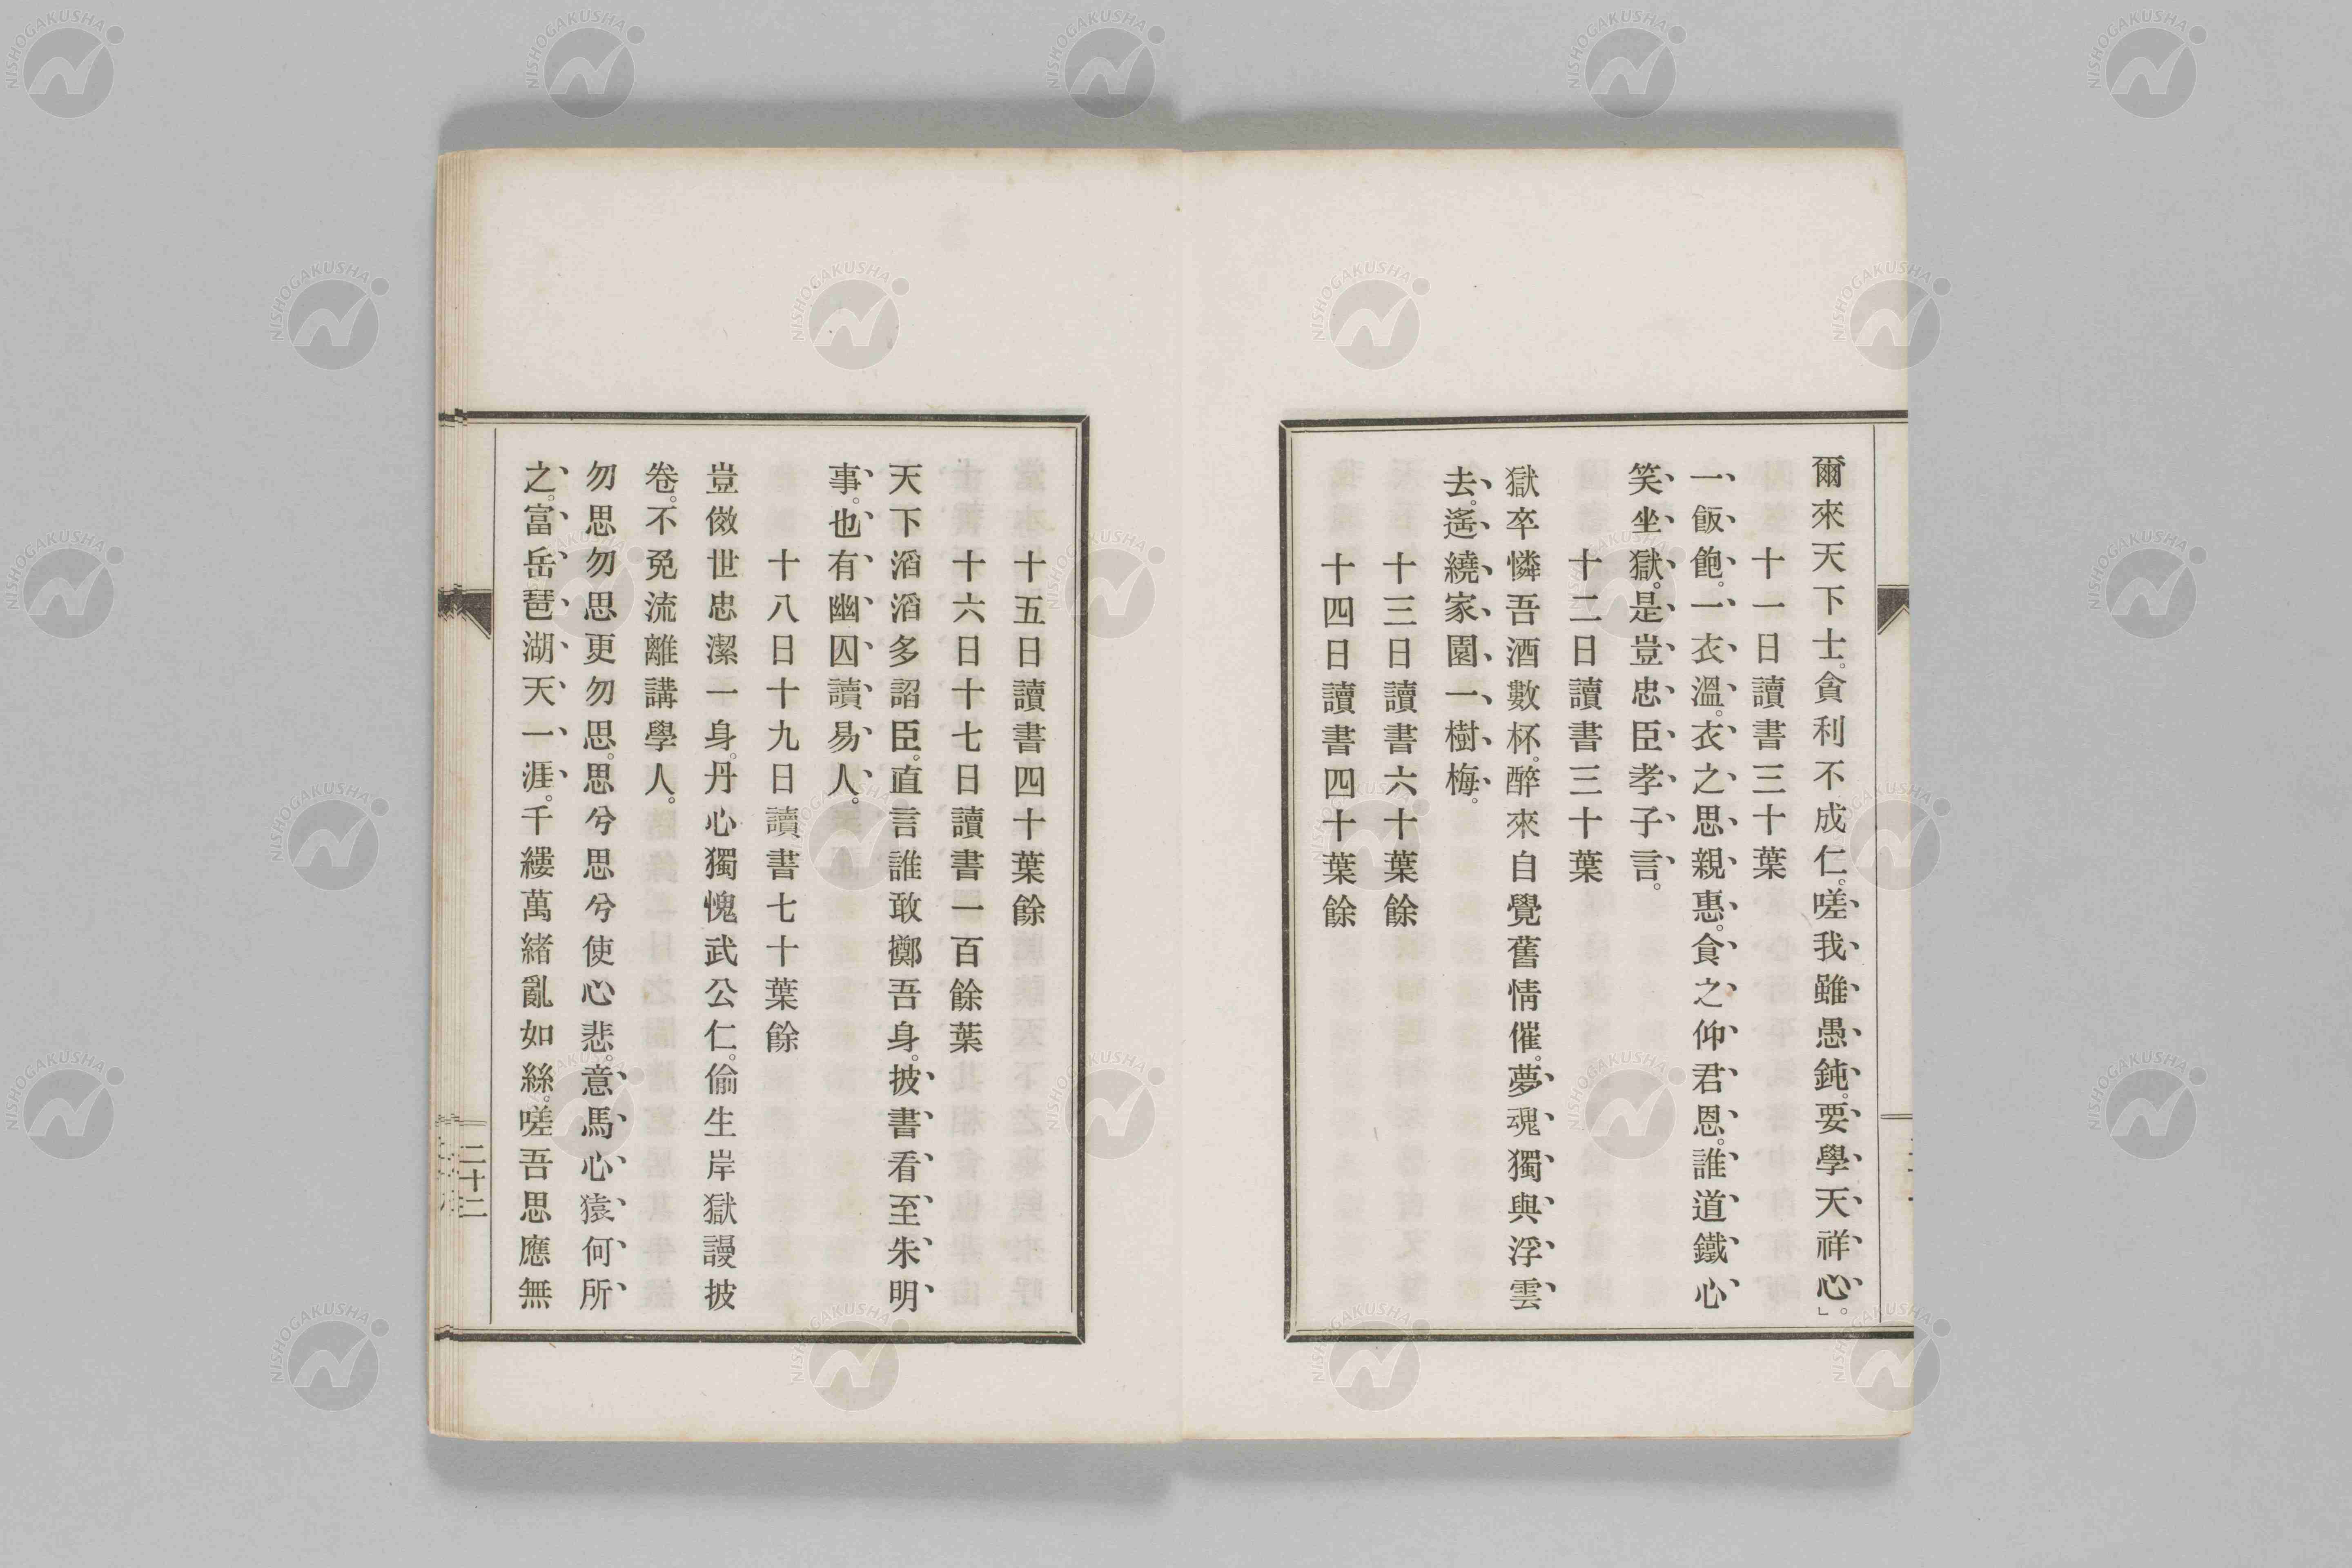 爾來天下士。貪利不成仁。嗟我雖愚鈍。要學天祥心。」
十一日讀書三十葉
一飯飽。一衣溫。衣之思親惠。食之仰君恩。誰道鐵心
笑坐獄。是豈忠臣孝子言。
十二日讀書三十葉
獄卒憐吾酒數杯。醉來自覺舊情催。夢魂獨與浮雲
去。遙繞家園一樹梅。
十三日讀書六十葉餘
十四日讀書四十葉餘
十五日讀書四十葉餘
十六日十七日讀書一百餘葉
天下滔滔多諂臣。直言誰敢擲吾身。披書看至朱明
事。也有幽囚讀易人。
十八日十九日讀書七十葉餘
豈傚世忠潔一身。丹心獨愧武公仁。偷生岸獄謾披
卷。不免流離講學人。
勿思勿思更勿思。思兮思兮使心悲。意馬心猿何所
之。富岳琶湖天一涯。千縷萬緒亂如絲。嗟吾思應無
二十二
NISHOGAKUSHA